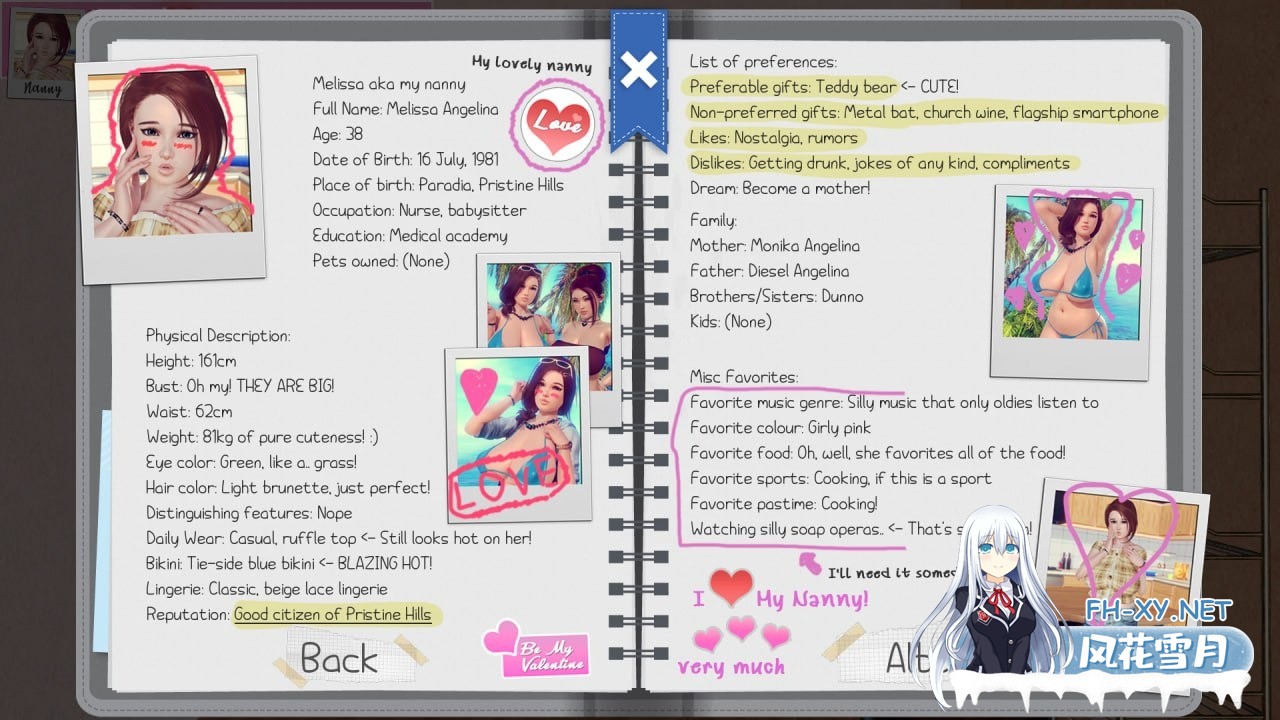 Nanny
My lovely nanny
Melissa aka my nanny
Full Name: Melissa Angelina
Age: 38
Date of Birth: 16 July, 1981
Place of birth: Paradia, Pristine Hills
Occupation: Nurse, babysitter
Education: Medical academy
Pets owned: (None)
Love
Physical Description:
Height: 161cm
Bust: Oh my! THEY ARE BIG!
Waist: 62cm
Weight: 81kg of pure cuteness! :)
Eye color: Green, like a.. grass!
Hair color: Light brunette, just perfect!
Distinguishing features: Nope
Daily Wear: Casual, ruffle top <- Still looks hot on her!
Bikini: Tie-side blue bikini <- BLAZING HOT!
Lingerie: Classic, beige lace lingerie
Reputation: Good citizen of Pristine Hills
LOVE
Back
Be My
Valentine
List of preferences:
Preferable gifts: Teddy bear <- CUTE!
Non-preferred gifts: Metal bat, church wine, flagship smartphone
Likes: Nostalgia, rumors
Dislikes: Getting drunk, jokes of any kind, compliments
Dream: Become a mother!
Family:
Mother: Monika Angelina
Father: Diesel Angelina
Brothers/Sisters: Dunno
Kids: (None)
Misc Favorites:
Favorite music genre: Silly music that only oldies listen to
Favorite colour: Girly pink
Favorite food: Oh, well, she favorites all of the food!
Favorite sports: Cooking, if this is a sport
Favorite pastime: Cooking!
Watching silly soap operas.. <- That's
I'll need it
I My Nanny!
very much
FH-XY.NET
风花雪月